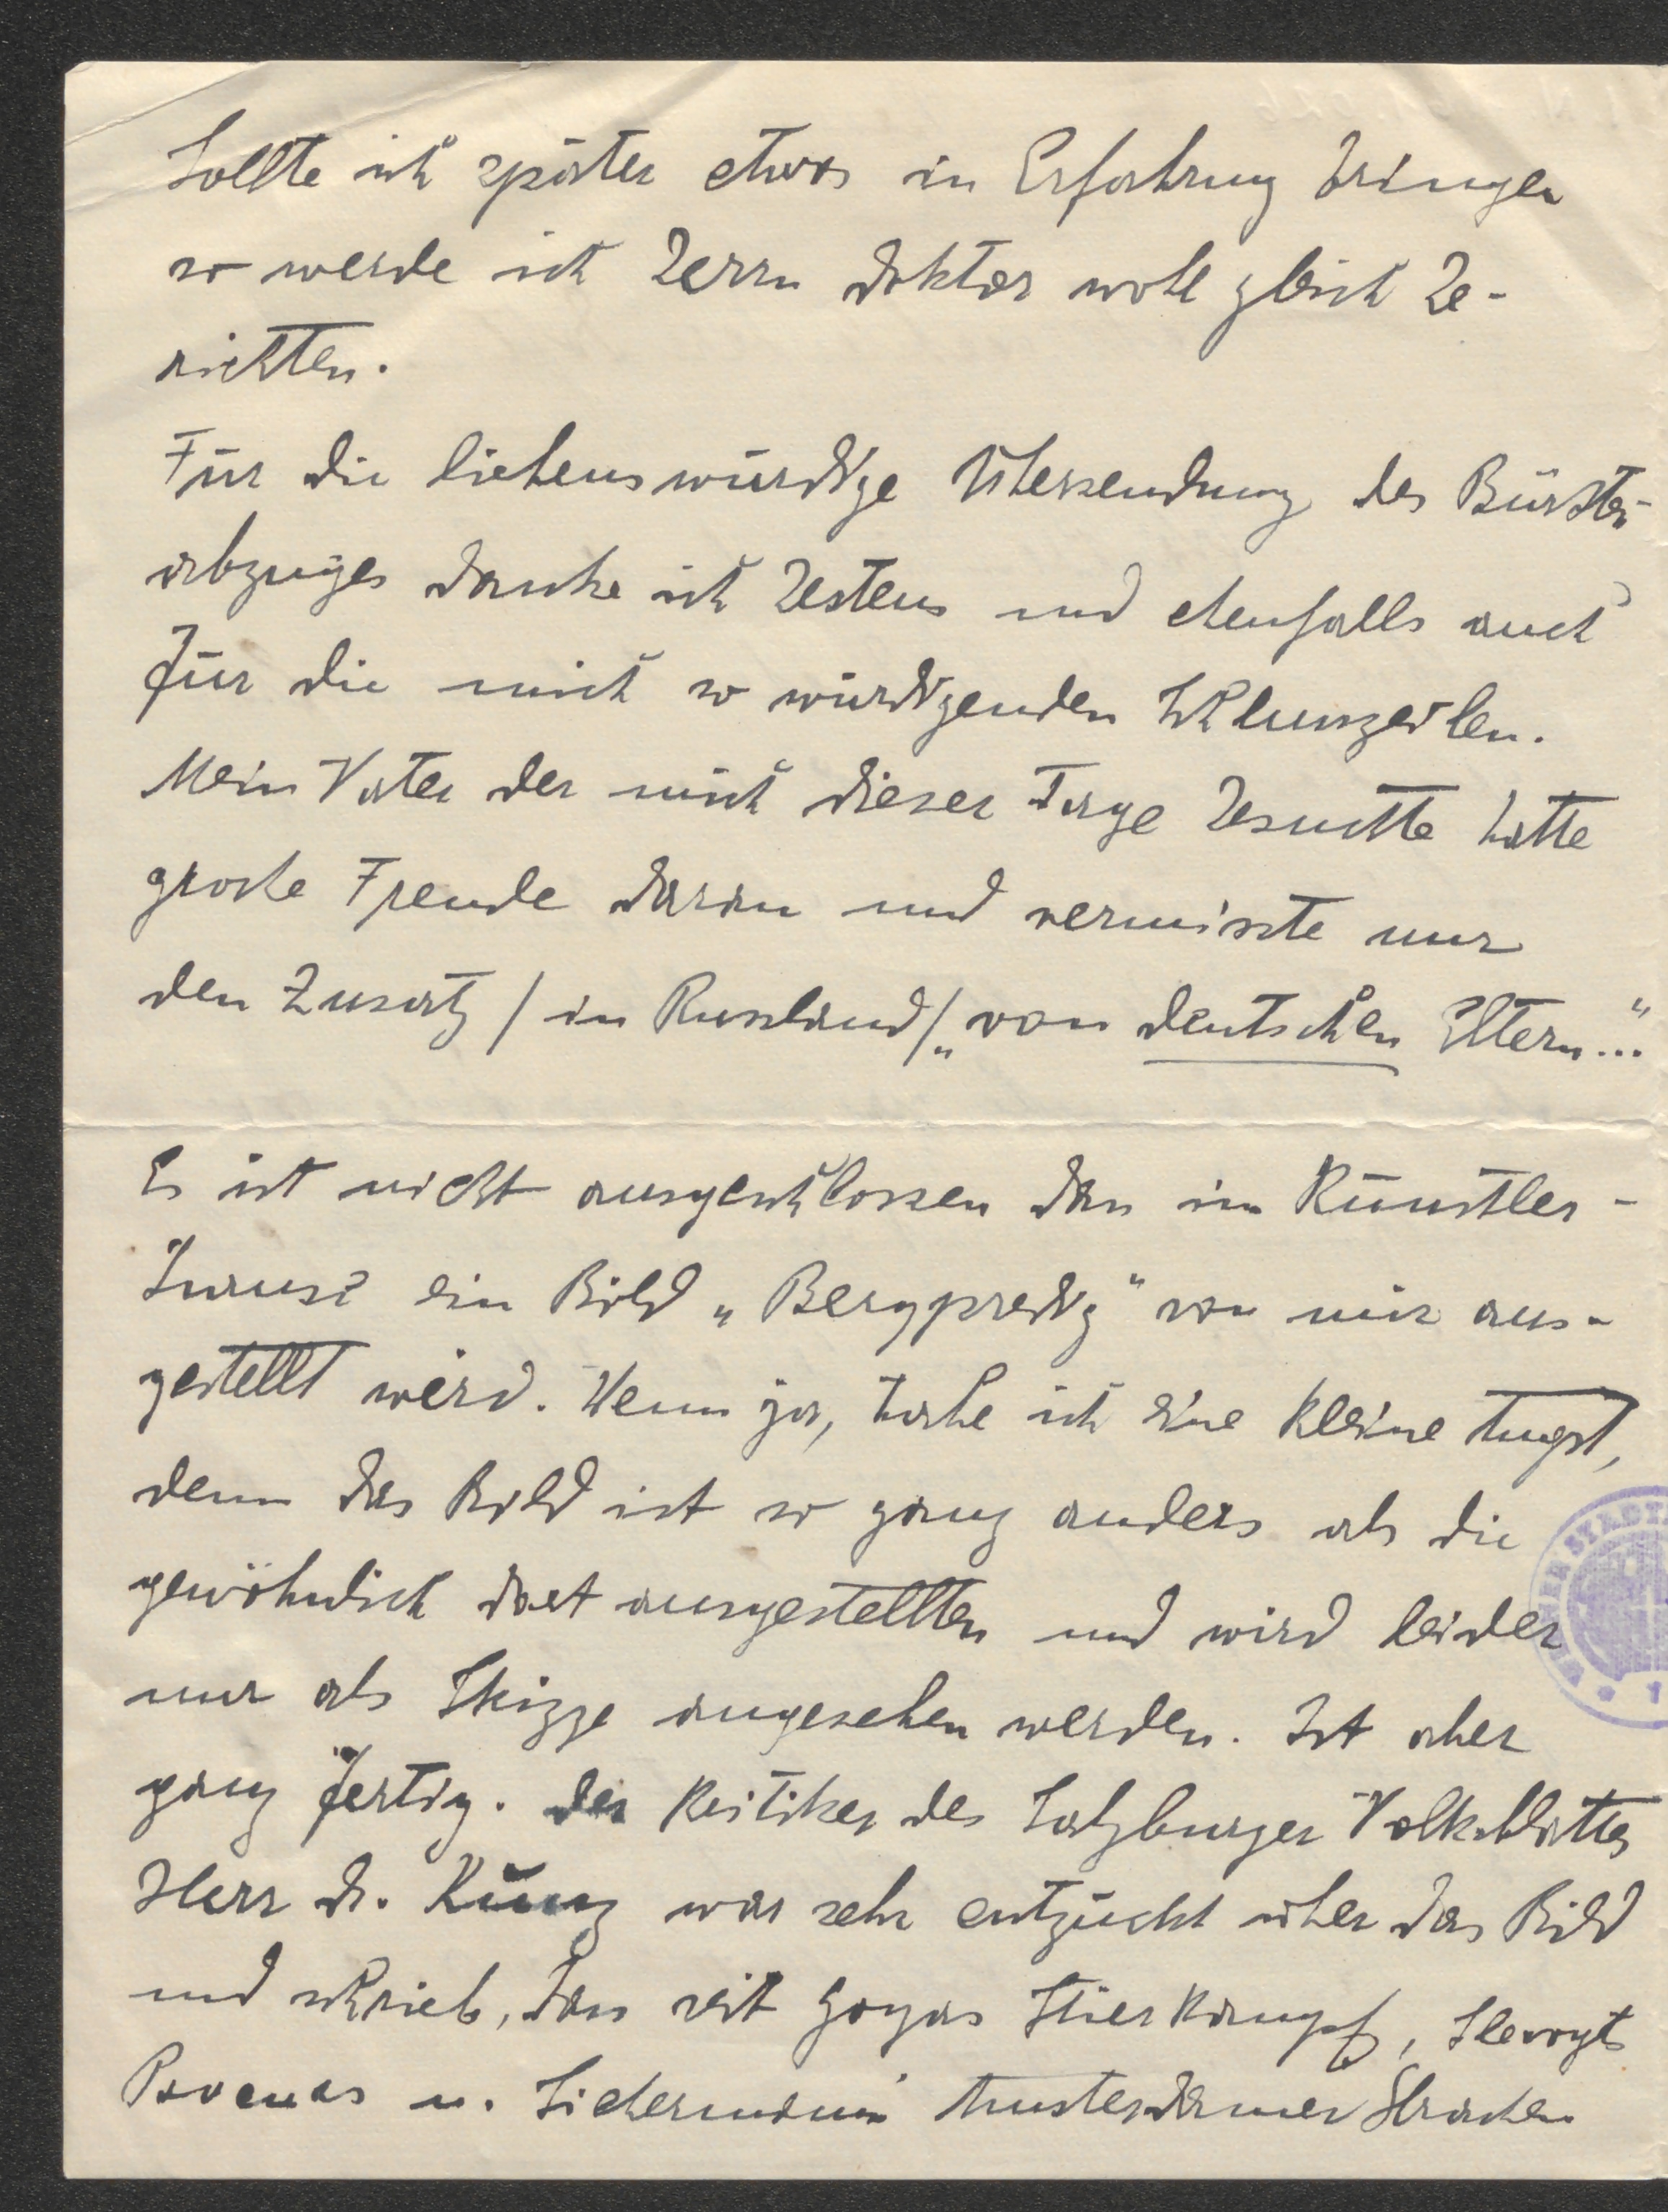 Sollte ich später etwas in Erfahrung bringen
so werde ich Herrn Doktor wohl gleich be-
richten.
Für die liebenswürdige Übersendung des Bürsten-
abzuges danke ich bestens und ebenfalls auch
für die mich so würdigenden Schlusszeilen.
Mein Vater der mich dieser Tage besuchte hatte
grosse Freude daran und vermisste nur
den Zusatz / in Russland / „von deutschen Eltern..."
Es ist nicht ausgeschlossen dass im Künstler-
hause ein Bild „Bergpredig" von mir aus-
gestellt wird. Wenn ja, habe ich eine kleine Angst,
denn das Bild ist so ganz anders als die
gewöhnlich dort ausgestellten und wird leider
nur als Skizze angesehen werden. Ist aber
ganz fertig. Der Kritiker des Salzburger Volksblattes
Herr Dr. Kunz war sehr entzückt über das Bild
und schrieb, dass seit Goyas Stierkampf, Slevogts
u. Liebermann Amsterdamer
WIENER STADT